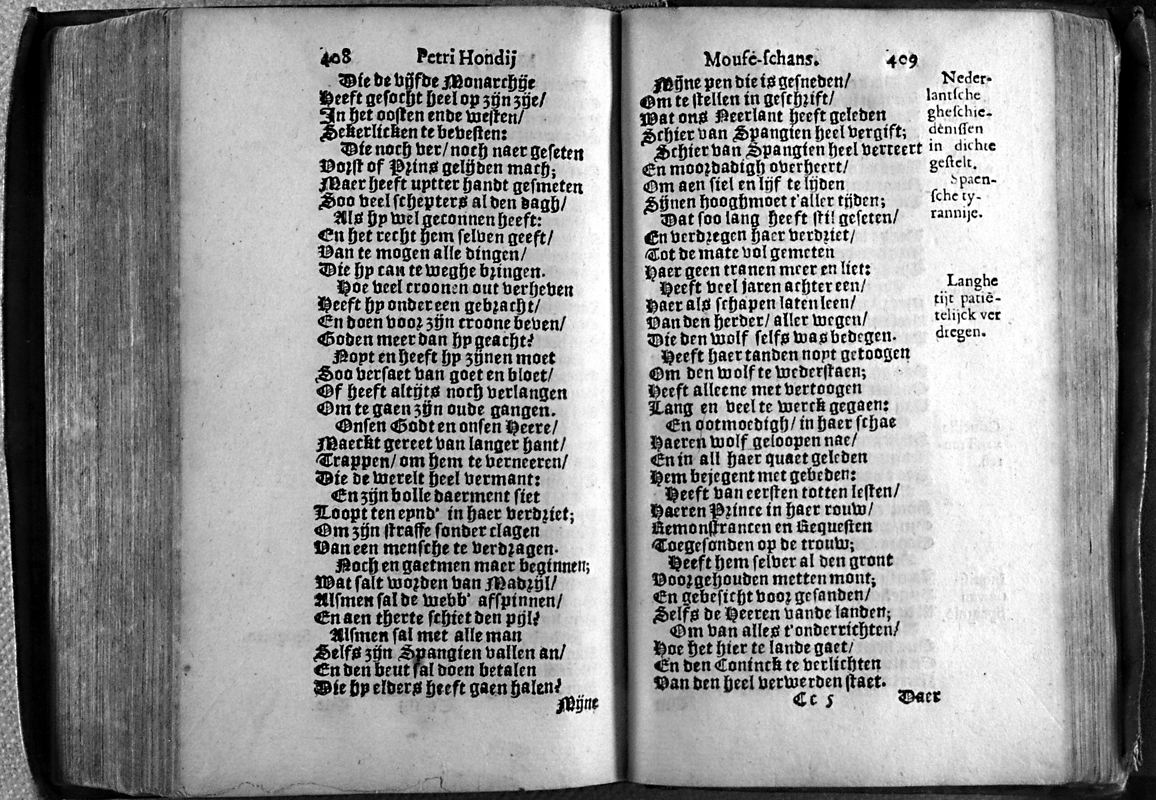 408 Petri Hondij
Die de vijfde Monarchije
Heeft gesocht heel op zijn zije/
In het oosten ende westen/
Sekerlicken te bevesten:
Die noch ver/ noch naer geseten
Vorst of Prins gelijden mach;
Maer heeft uptter handt gesmeten
Soo veel schepters al den dagh/
Als hy wel geconnen heeft:
En het recht hem selven geeft/
Van te mogen alle dingen/
Die hy can te weghe bringen.
Hoe veel croonen out verheven
Heeft hy onder een gebracht/
En doen voor zijn croone beven/
Goden meer dan hy geacht?
Noyt en heeft hy zijnen moet
Soo versaet van goet en bloet/
Of heeft altijts noch verlangen
Om te gaen zijn oude gangen.
Onsen Godt en onsen Heere/
Maeckt gereet van langer hant/
Trappen/ om hem te verneeren/
Die de werelt heel vermant:
En zijn bolle daerment siet
Loopt ten eynd' in haer verdriet;
Om zijn straffe sonder clagen
Van een mensche te verdragen.
Noch en gaetmen maer beginnen;
Wat salt worden van Madrijl/
Alsmen sal de webb' afspinnen/
En aen therte schiet den pijl?
Alsmen sal met alle man
Selfs zijn Spangien vallen an/
En den beut sal doen betalen
Die hy elders heeft gaen halen?
Mijne
Mouse-schans. 409
Mijne pen die is gesneden/
Om te stellen in geschrift/
Wat ons Neerlant heeft geleden
Schier van Spangien heel vergift;
Schier van Spangien heel verteert
En moordadigh overheert/
Om aen siel en lijf te lijden
Sijnen hooghmoet t'aller tijden;
Dat soo lang heeft stil geseten/
En verdregen haer verdriet/
Tot de mate vol gemeten
Haer geen tranen meer en liet:
Heeft veel jaren achter een/
Haer als schapen laten leen/
Van den herder/ aller wegen/
Die den wolf selfs was bedegen.
Heeft haer tanden noyt getoogen
Om den wolf te wederstaen;
Heeft alleene met vertoogen
Lang en veel te werck gegaen:
En ootmoedigh/ in haer schae
Haeren wolf geloopen nae/
En in all haer quaet geleden
Hem bejegent met gebeden:
Heeft van eersten totten lesten/
Haeren Prince in haer rouw/
Remonstrancen en Requesten
Toegesonden op de trouw;
Heeft hem selver al den gront
Voorgehouden metten mont;
En gebesicht voor gesanden/
Selfs de Heeren vande landen;
Om van alles t'onderrichten/
Hoe het hier te lande gaet/
En den Coninck te verlichten
Van den heel verwerden staet.
Cc 5 Daer
Neder-
lantsche
gheschie-
denissen
in dichte
gestelt.
Spaen-
sche ty-
rannije.
Langhe
tijt patiē-
telijck ver
dregen.